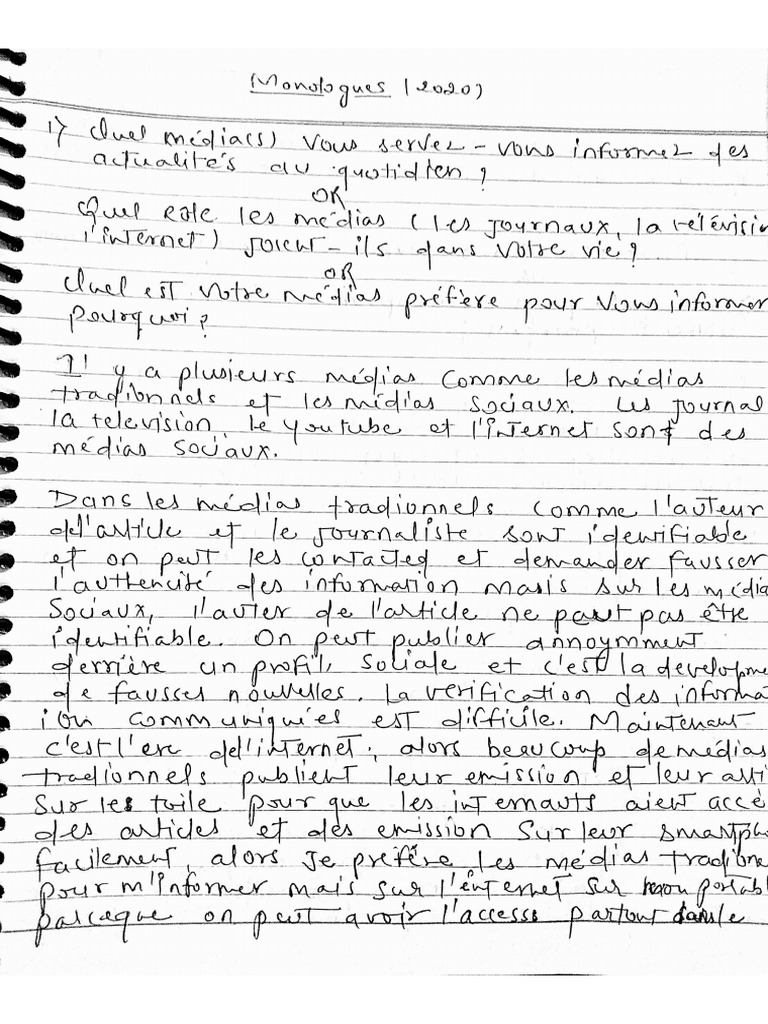 Monologues (2020)
1) Quel média(s) vous servez-vous informez des
actualités du quotidien ?
OR
Quel role les médias (les journaux, la télévision
l'internet) joient-ils dans votre vie ?
OR
Quel est votre médias préfère pour vous informer
pourquoi ?
Il y a plusieurs médias comme les médias
tradionnels et les médias sociaux. Les journal
la television, le youtube et l'internet sont des
médias sociaux.
Dans les médias tradionnels comme l'auteur
del'article et le journaliste sont identifiable
et on peut les contacted et demander fausser
l'authencité des information mais sur les média
Sociaux, l'auter de l'article ne peut pas être
identifiable. On peut publier annoymment
derrière un profil, sociale et c'est la developme
de fausses nouvelles. La verification des informa
ion communiquées est difficile. Maintenant
c'est l'ere del'internet, alors beaucoup de médias
tradionnels publient leur emission et leur arti
sur les toile pour que les internauts aient accè
des articles et des emission sur leur smartpho
facilement, alors je préfère les médias tradionne
pour m'informer mais sur l'internet sur mon portabl
parceque on peut avoir l'accesse partout dans le